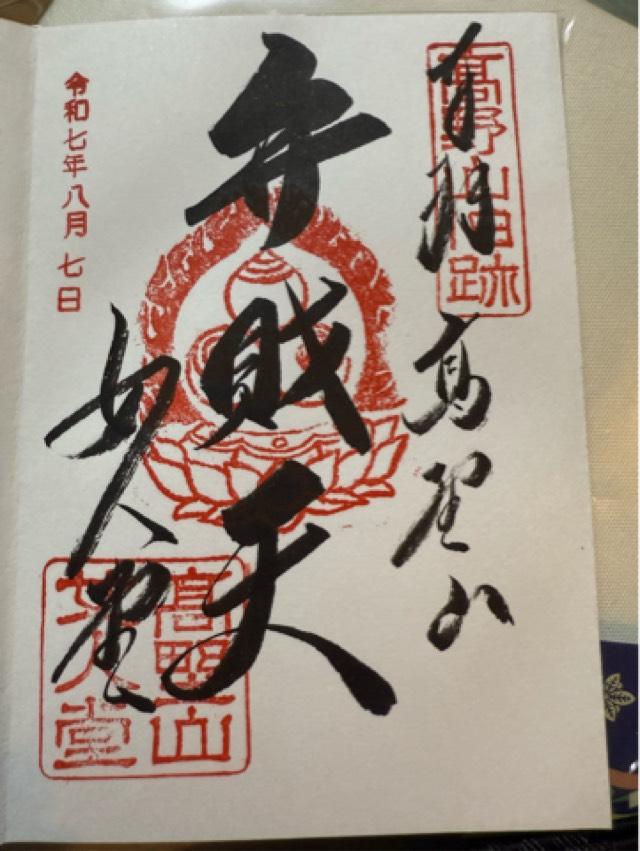 奉拝 高野山
髙野山旧跡
弁財天
女人堂
髙野山
女人堂
令和七年八月七日